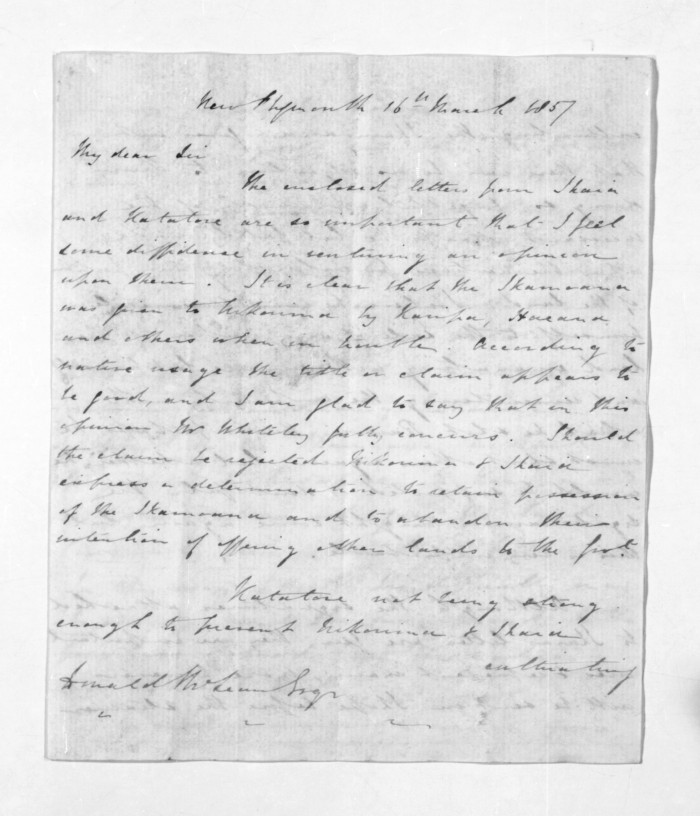 New Plymouth 16th March 1857
My dear Sir
The enclosed letters from Ihaia
and Katatore are so important that I feel
some diffidence in venturing an opinion
upon them. It is clear that the Ikamoana
was given to Nikorima by
and others when in trouble. According to
native usage the title or claim appears to
be good, and I am glad to say that in this
opinion Mr Whiteley fully concurs. Should
the claim be rejected Nikorima & Ihaia
express a determination to retain possession
of the Ikamoana and to abandon their
intention of offering other lands to the Govt.
Katatore not being strong
enough to prevent Nikorima & Ihaia
cultivating
Donald McLean Esqr